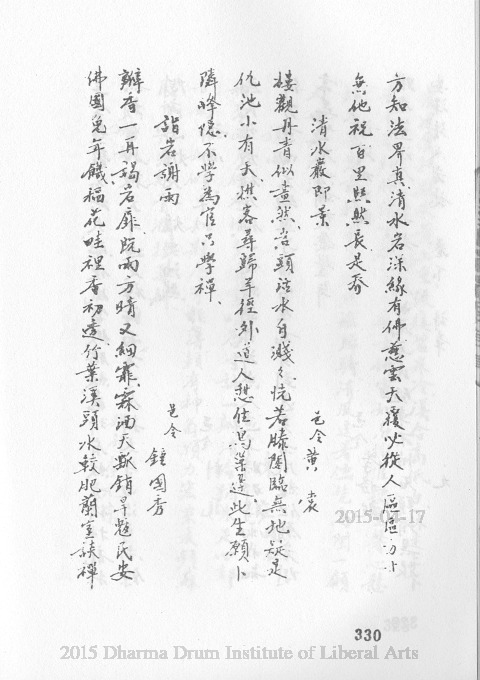 方知法界真清水名深緣有佛慈雲天覆必從人區區初卜
無他祝百里熙然長是春
清水巖即景
邑令黃裳
樓觀丹青似畫然岩頭活水自濺々恍若滕閣臨無地疑是
仇池小有天烘客尋歸羊徑外道人憩住鳥巢邊此生願卜
隣峰隱不學為官只學禪
詣岩謝雨
邑令
鍾國秀
瓣香一再謁岩扉既雨方晴又細霏霖沛天瓢銷旱魃民安
佛國免年饑稻花畦裡香初透竹葉溪頭水較肥蘭室談禪
2015-04-17
330
2015 Dharma Drum Institute of Liberal Arts